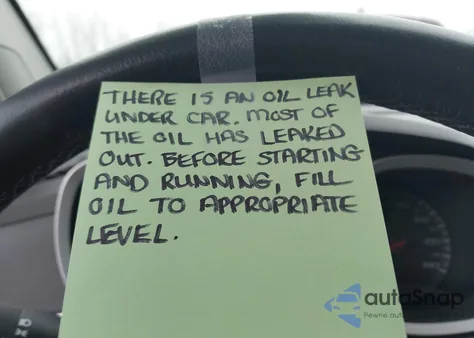 THERE IS AN OIL LEAK
UNDER CAR. MOST OF
THE OIL HAS LEAKED
OUT. BEFORE STARTING
AND RUNNING, FILL
OIL TO APPROPRIATE
LEVEL.
autoSnap
Pewne auto